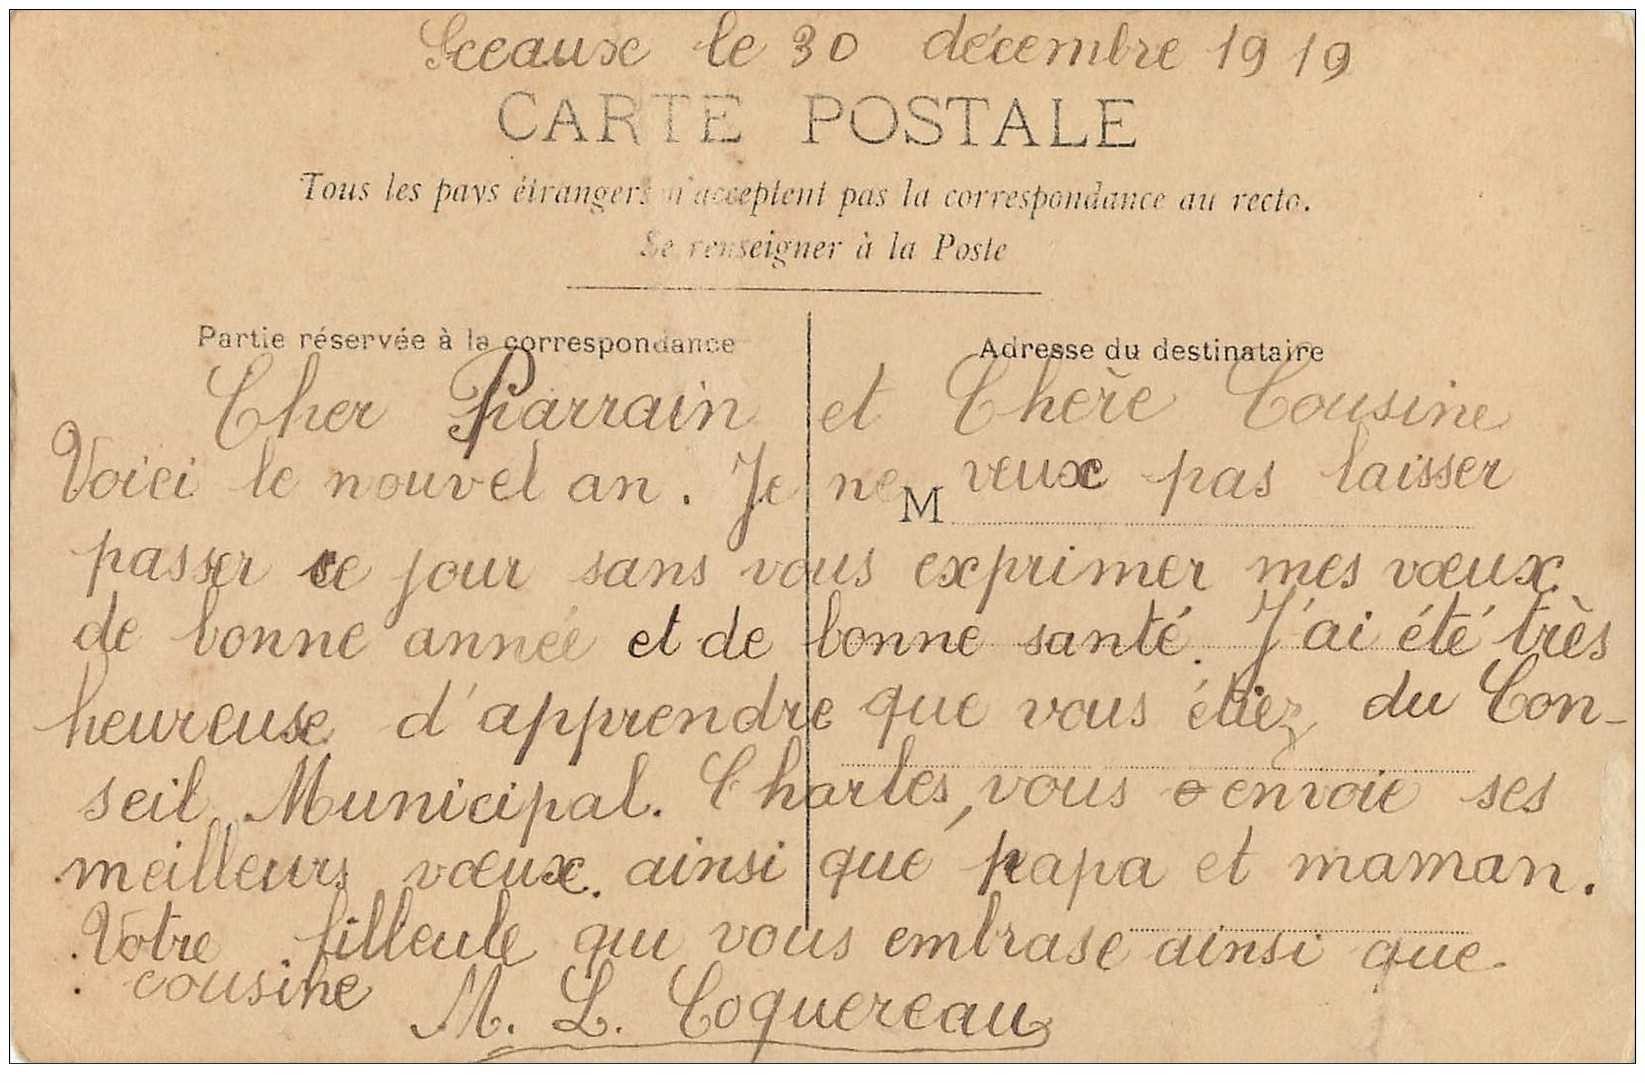 Sceaux le 30 décembre 1919
CARTE POSTALE
Tous les pays étrangers n'acceptent pas la correspondance au recto.
Se renseigner à la Poste
Partie réservée à la correspondance
Adresse du destinataire
Cher Parrain et Chère Cousine
Voici le nouvel an. Je ne veux pas laisser
M
passer ce jour sans vous exprimer mes vœux
de bonne année et de bonne santé. J'ai été très
heureuse d'apprendre que vous étiez du Con-
seil Municipal. Charles, vous envoie ses
meilleurs vœux. ainsi que papa et maman.
Votre filleule qui vous embrase ainsi que
cousine M. L. Coquereau